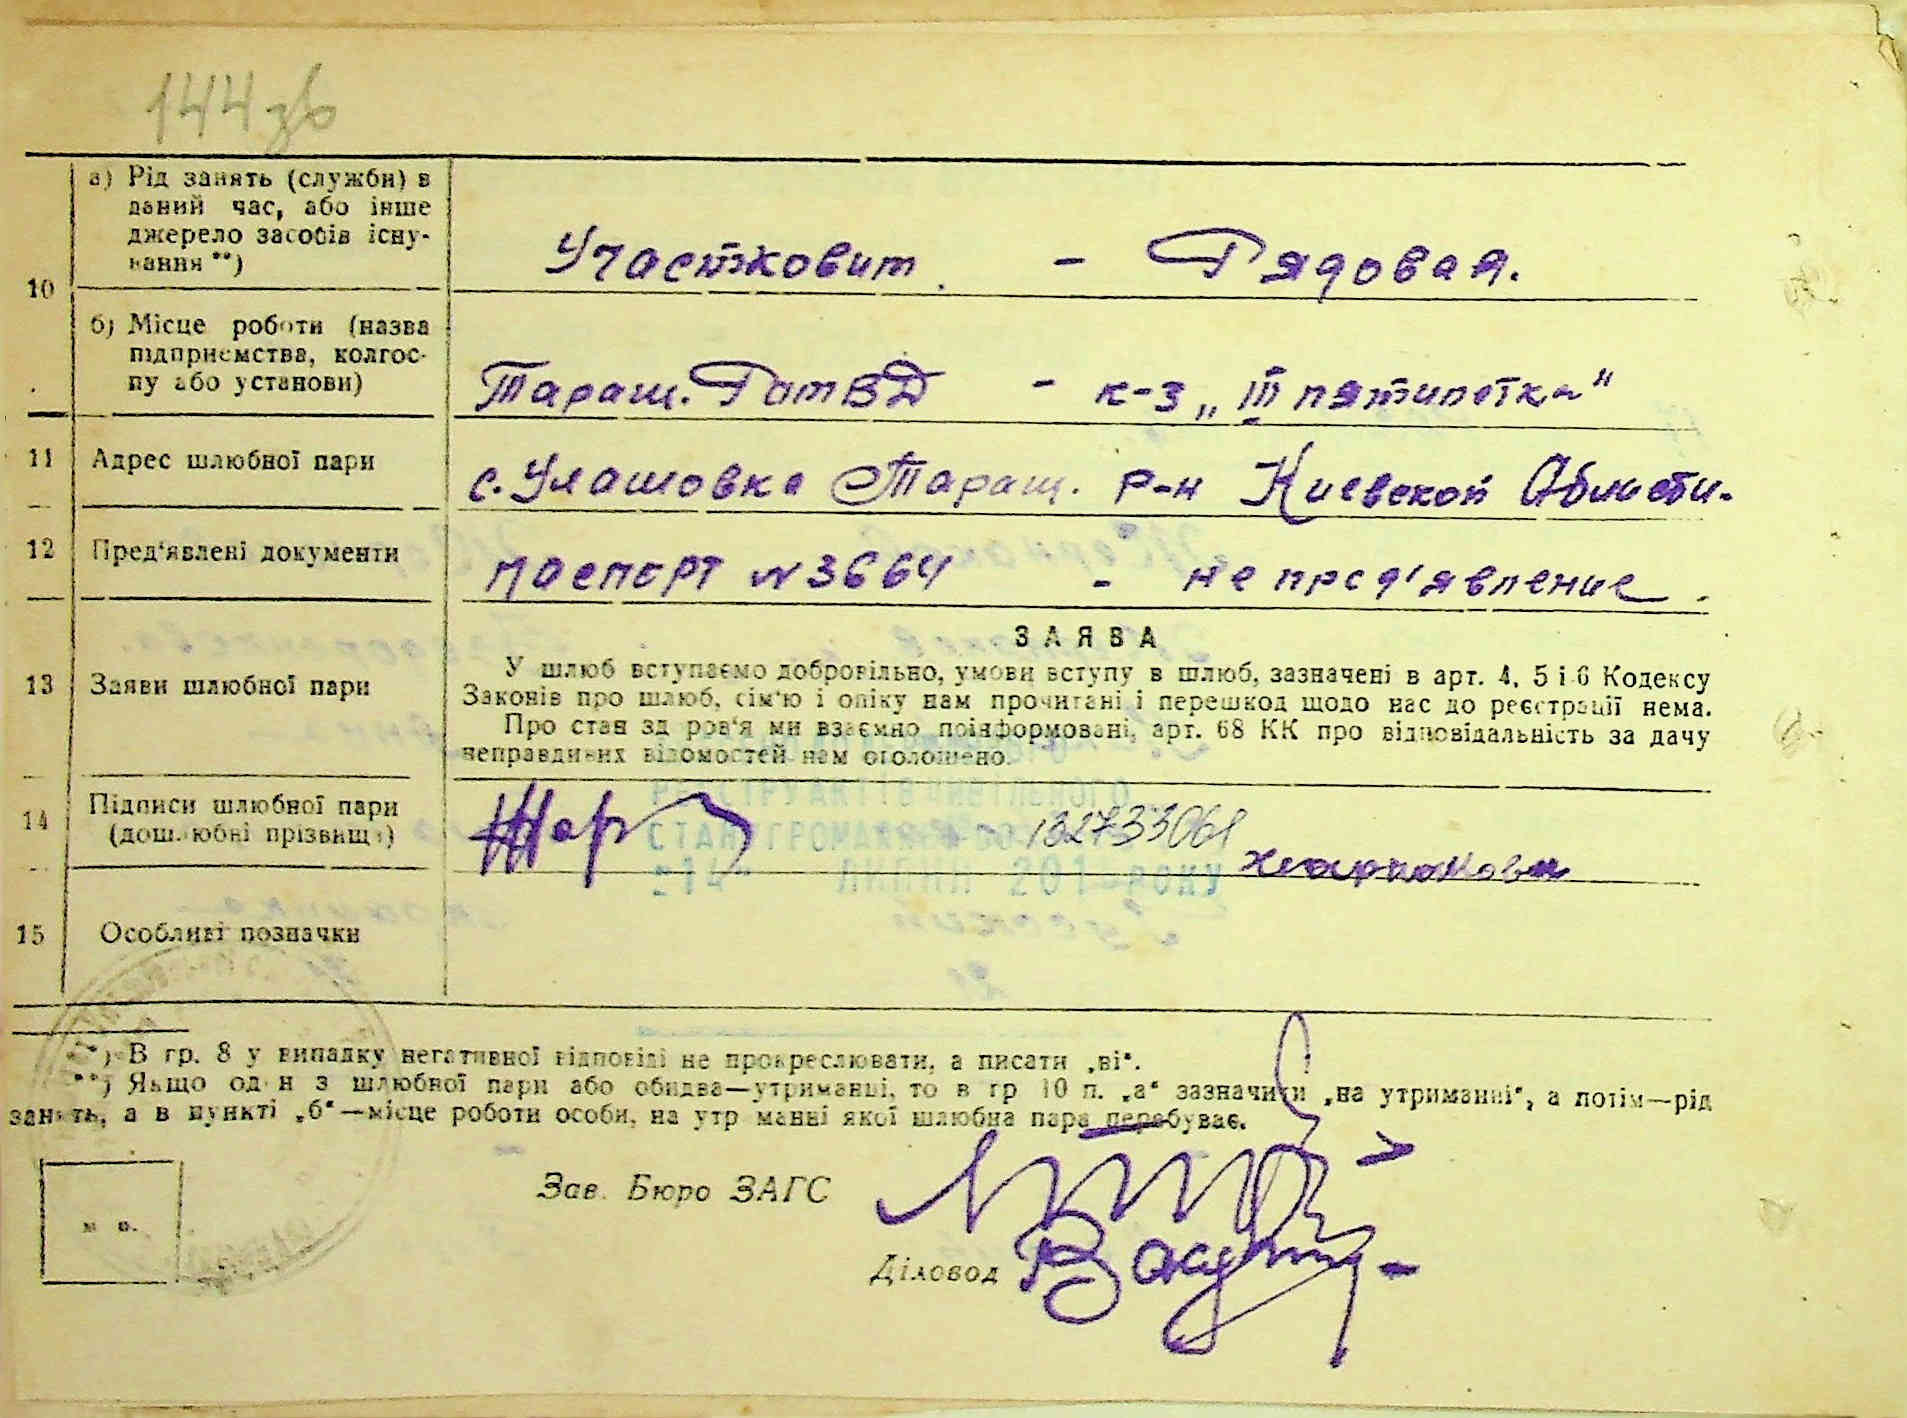 144зв
а) Рід занять (служби) в
даний час, або інше
джерело засобів існу-
вання **)
Участковит - Рядовая.
10
б) Місце роботи (назва
підприємства, колгос-
пу або установи)
Таращ. РотВД - к-з „III пятилетка"
11 Адрес шлюбної пари
с. Улашовка Таращ. р-н Киевской Области.
12 Пред'явлені документи
паспорт № 3664 - не пред'явление.
ЗАЯВА
13 Заяви шлюбної пари
У шлюб вступаємо добровільно, умови вступу в шлюб, зазначені в арт. 4, 5 і 6 Кодексу
Законів про шлюб, сім'ю і опіку нам прочитані і перешкод щодо нас до реєстрації нема.
Про стан здоров'я ми взаємно поінформовані, арт. 68 КК про відповідальність за дачу
неправдивих відомостей нам оголошено.
14 Підписи шлюбної пари
(дошлюбні прізвища)
132733061
15 Особливі позначки
*) В гр. 8 у випадку негативної відповіді не прокреслювати, а писати „ні".
**) Якщо один з шлюбної пари або обидва—утриманці, то в гр 10 п. „а" зазначити „на утриманні", а потім—рід
занять, а в пункті „б"—місце роботи особи, на утриманні якої шлюбна пара перебуває.
Зав. Бюро ЗАГС
м п.
Діловод